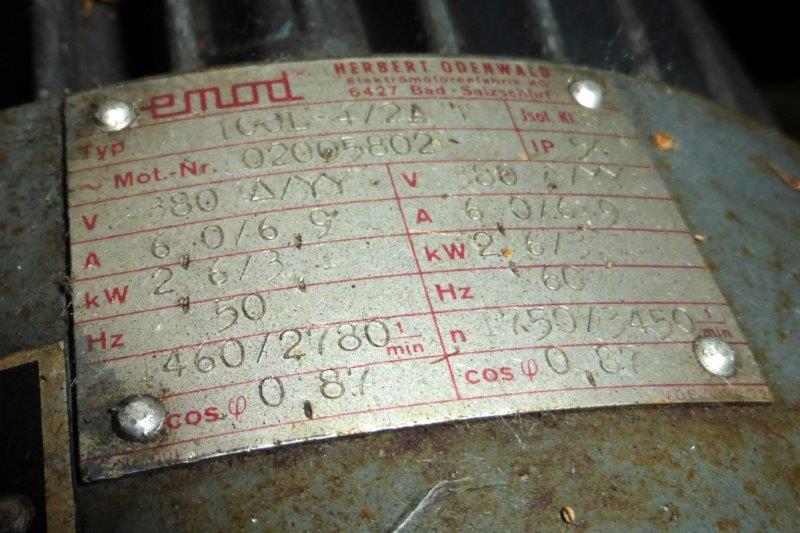 emod HERBERT ODENWALD
Elektromotorenfabrik KG
6427 Bad-Salzschlirf
Typ 100L-4/2A T Jsol. Kl.
~ Mot.-Nr. 02065802 IP 54
V 380 Δ/YY V 380 Δ/YY
A 6,0/6,9 A 6,0/6,9
kW 2,6/3, kW 2,6/3,
Hz 50 Hz 60
1460/2780 1/min n 1750/3450 1/min
cos φ 0,87 cos φ 0,87